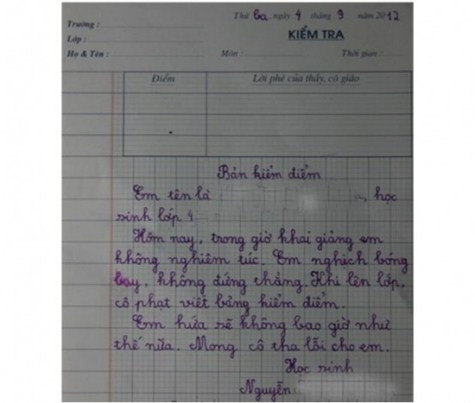 Thứ ba ngày 4 tháng 9 năm 2012
Trường :
Lớp :
KIỂM TRA
Họ & Tên :
Môn :
Thời gian :
Điểm
Lời phê của thầy, cô giáo
Bản kiểm điểm
Em tên là học
sinh lớp 4
Hôm nay, trong giờ khai giảng em
không nghiêm túc. Em nghịch bóng
bay, không đứng thẳng. Khi lên lớp,
cô phạt viết bảng kiểm điểm.
Em hứa sẽ không bao giờ như
thế nữa. Mong cô tha lỗi cho em.
Học sinh
Nguyễn